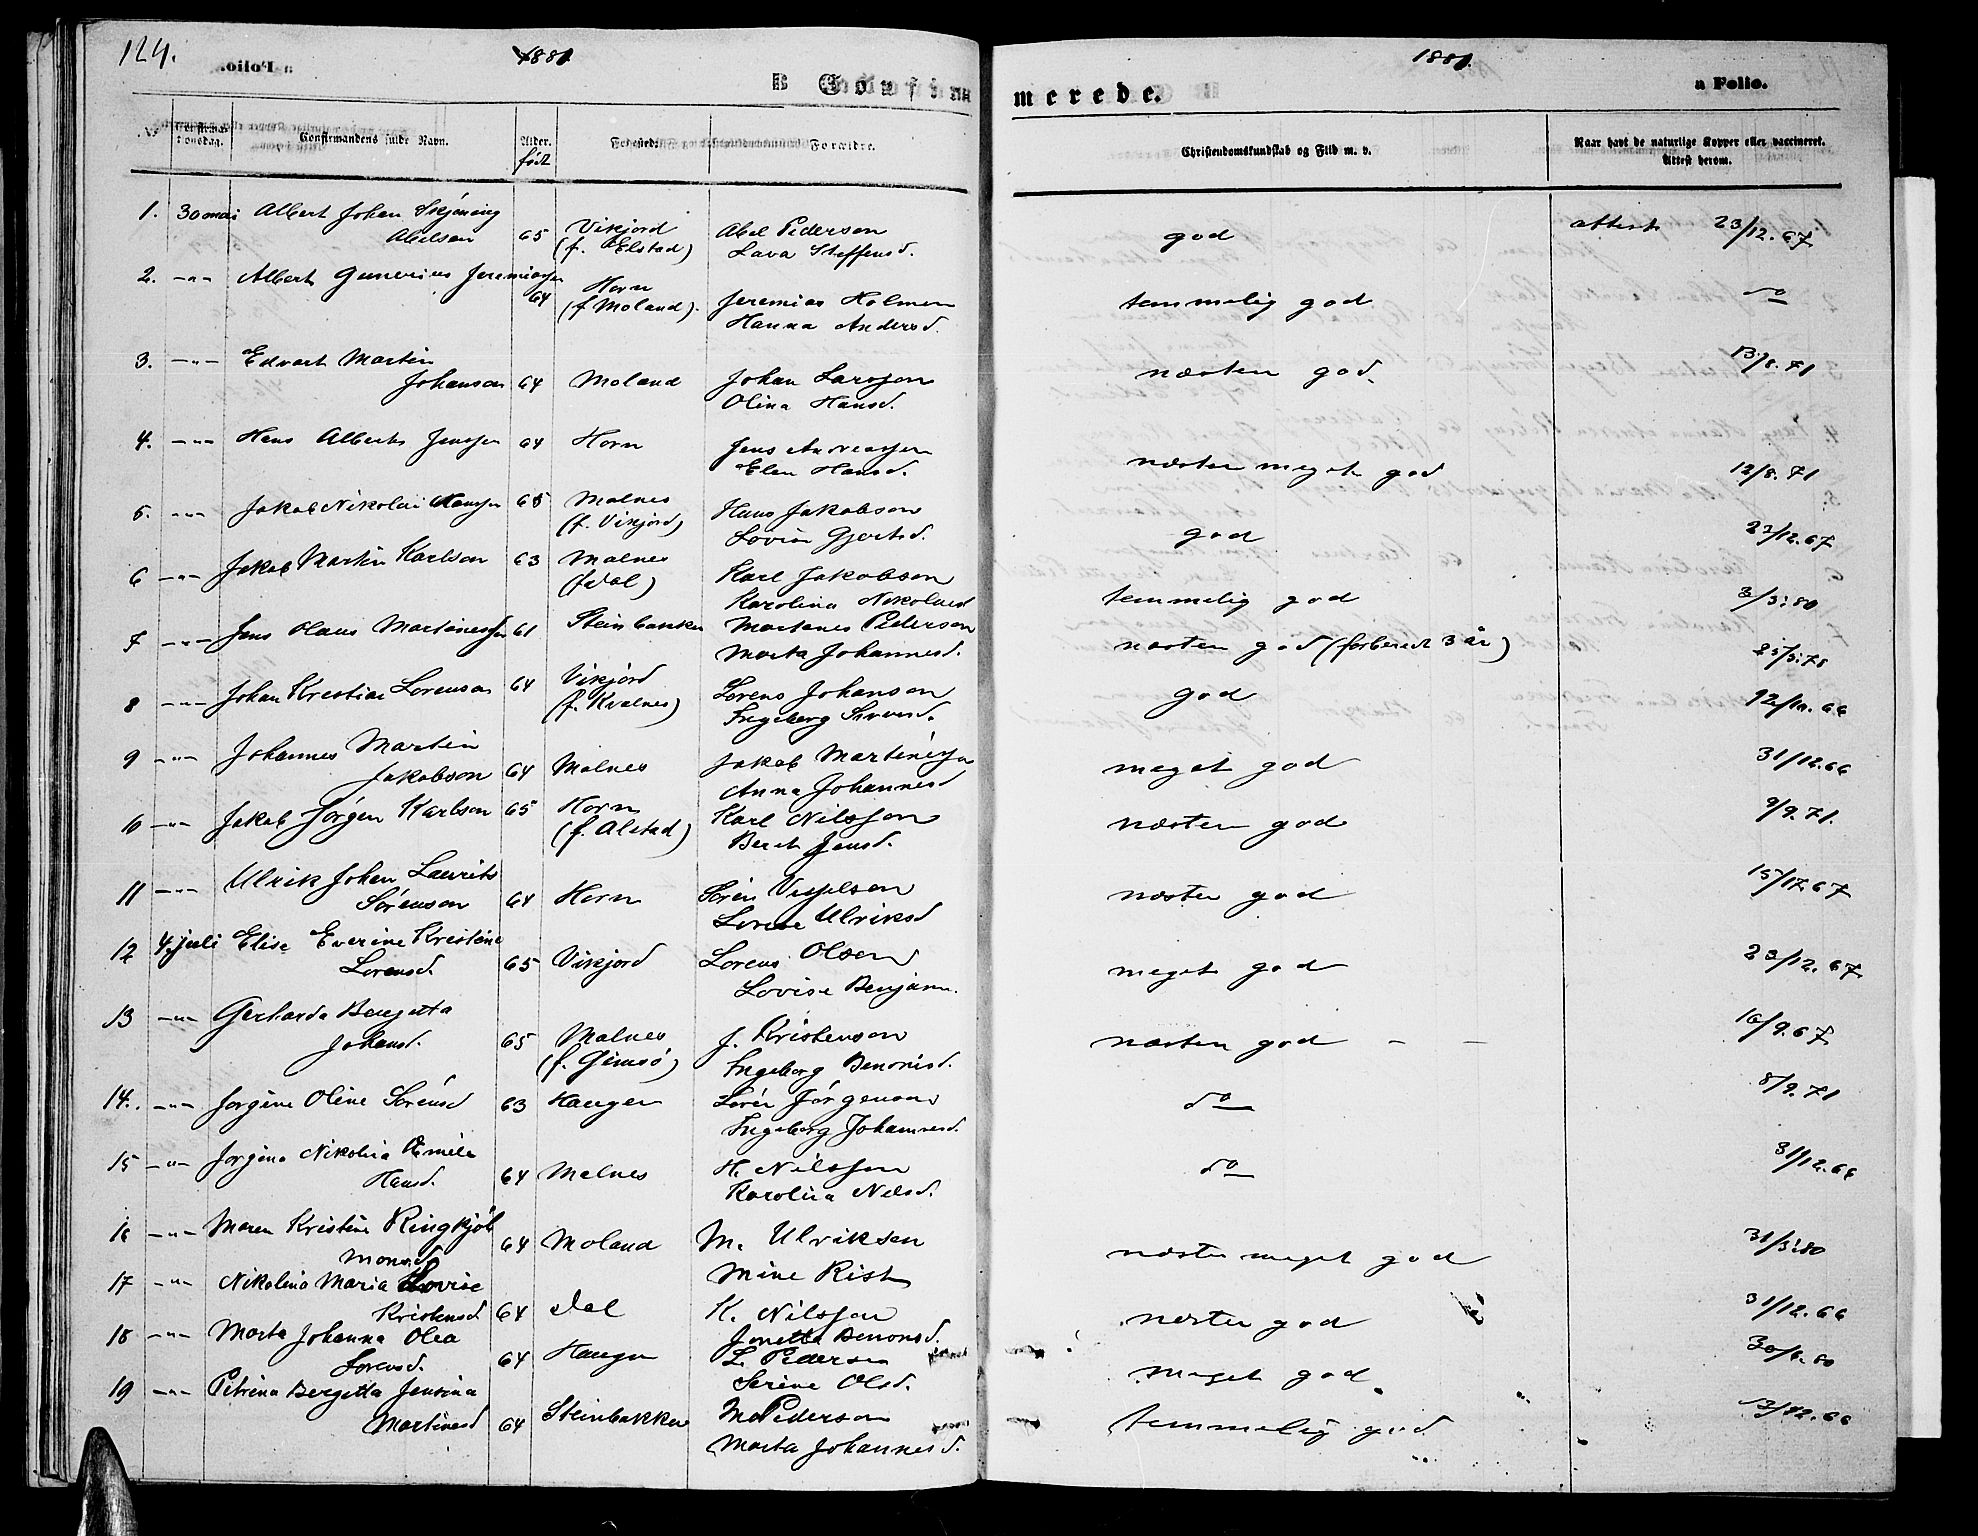 124.
1881
1881.
B Confirmerede.
a Folio.
No
Confirmationsdag.
Confirmandens fulde Navn.
Alder. født
Fødested.
Forældre.
Christendomskundskab og Flid m. v.
Naar havt de naturlige Kopper eller vaccineret. Attest herom.
1. 30 mai Albert Johan Skjöning Abelson 65 Vikjord (f. Elstad) Abel Pederson Lava Steffensd. god attest 23/12.67
2. -"- Albert Gunerius Jeremiassen 64 Horn (f. Moland). Jeremias Holmen Hanna Andersd. temmelig god do
3. -"- Edvart Martin Johanson 64 Moland Johan Larsson Olina Hansd. næsten god. 13/8.71
4. -"- Hans Alberts Jenssen 64 Horn Jens Andreassen Elen Hansd. næsten meget god 12/8.71
5. -"- Jakob Nikolai Hanssen 65 Malnes (f. Vikjord) Hans Jakobson Lovisa Gjertsd. god 27/12.67
6 -"- Jakob Martin Karlson 63 Malnes (f. Dal) Karl Jakobson Karolina Nikolaisd temmelig god 3/3.80
7 -"- Jens Olaus Martinessen 61 Steinbakken Martenes Pederson Marta Johannesd. næsten god (forberedt 3 år) 25/5.78
8 -"- Johan Kristian Lorenson 64 Vikjord (f. Kvalnes) Lorens Johanson Ingeborg Sivesd. god 12/10.66
9 -"- Johannes Martin Jakobson 64 Malnes Jakob Martinessen Anna Johannesd meget god 31/12.66
10 -"- Jakob Jörgen Karlson 65 Horn (f. Alstad) Karl Nilsson Beret Jensd. næsten god 9/9.71.
11 -"- Ulrik Johan Laurits Sörenson 64 Horn Sören Vesselson Lovise Ulriksd næsten god 15/12 67
12 4 juli Elise Everine Kristine Lorensd. 65 Vikjord Lorens Olsen Lovise Benjam. meget god 23/12.67
13 -"- Gerharda Bergetta Johansd. 65 Malnes (f. Gimsö) J. Kristenson Ingeborg Benonisd. næsten god - - 16/9.67
14. -"- Jorgine Oline Sörensd 63 Haugen Sören Jörgenson Ingeborg Johannesd. do 8/9.71
15 -"- Jorgine Nikolina Emilie Hansd. 64 Malnes H. Nilsson Karolina Nilsd. do 31/12.66
16 -"- Maren Kristine Ringkjöb Monsd 64 Moland M. Ulriksen Mine Rist næsten meget god 31/3.80
17 -"- Nikolina Maria Lovise Kristensd 64 Dal K. Nilsson Jonetta Benonsd. næsten god 31/12.66
18 -"- Marta Johanna Olea Lorensd. 64 Haugen L. Pederson Serine Olsd. meget god 30/6.80
19 -"- Petrina Bergetta Jensina Martinesd 64 Steinbakken M. Pederson Marta Johannesd. temmelig god. 13/12.66